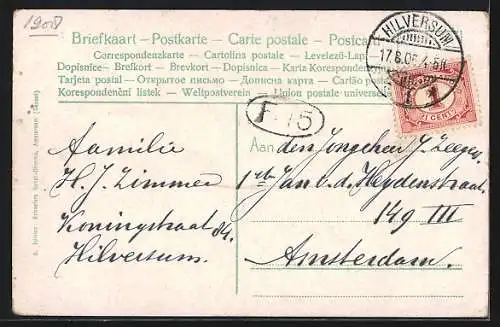 1908
Briefkaart – Postkarte – Carte postale – Postcard
Correspondenzkarte – Cartolina postale – Levelező-Lap
Dopisnice – Brefkort – Brevkort – Dopisnica – Karta Korespondencyjna
Tarjeta postal – Открытое письмо – Дописна карта – Cartão postal
Korespondenční listek – Weltpostverein – Union postale universelle
HILVERSUM
17.8.08. 4-5N
1
1 CENT
F 15
Aan den Jongeheer J. Zeegers
1ste Jan v.d. Heydenstraat
149 III
Amsterdam.
Familie
H. J. Zimmer
Koningstraat 84.
Hilversum.